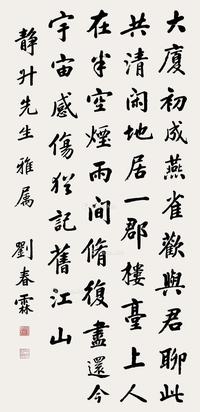 大廈初成燕雀歡與君聊此
共清閑地居一郡樓臺上人
在半空煙雨間脩復盡還今
宇宙感傷猶記舊江山
靜升先生雅屬
劉春霖